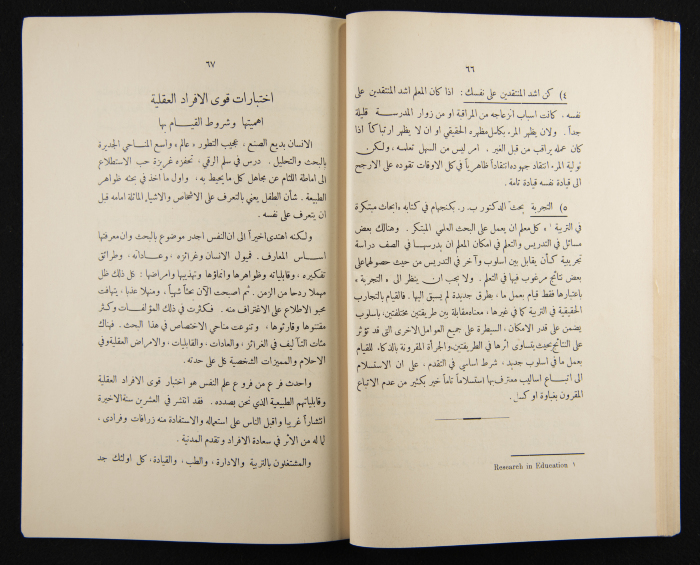 ٦٦
٤) كن اشد المنتقدين على نفسك : اذا كان المعلم اشد المنتقدين على
نفسه . كانت اسباب انزعاجه من المراقبة او من زوار المدرسة قليلة
جداً . ولان يظهر المرء بكامل مظهره الحقيقي او ان لا يظهر ارتباكاً اذا
كان عمله يراقب من قبل الغير . امر ليس من السهل تعلمه ، ولكن
تولية المرء انتقاد جهوده انتقاداً ظاهرياً في كل الاوقات تقوده على الارجح
الى قيادة نفسه قيادة تامة .
٥) التجربة بحث الدكتور ب. ر. بكنجهام في كتابه «ابحاث مبتكرة
في التربية ١» كل معلم ان يعمل على البحث العلمي المبتكر . وهنالك بعض
مسائل في التدريس والتعلم في امكان المعلم ان يدرسها في الصف دراسة
تجريبية كأن يقابل بين اسلوب وآخر في التدريس من حيث حصولها على
بعض نتائج مرغوب فيها في التعلم . ولا يجب ان ينظر الى « التجربة »
باعتبارها فقط قيام بعمل ما ، بطرق جديدة لم يسبق اليها . فالقيام بالتجارب
الحقيقية في التربية كما في غيرها ، معناه مقابلة بين طريقتين مختلفتين ، باسلوب
يضمن على قدر الامكان ، السيطرة على جميع العوامل الاخرى التي قد تؤثر
على النتائج بحيث يتساوى اثرها في الطريقتين. والجرأة المقرونة بالذكاء، للقيام
بعمل ما في اسلوب جديد ، شرط اساسي في التقدم ، على ان الاستسلام
الى اتباع اساليب معترف بها استسلاماً تاماً خير بكثير من عدم الاتباع
المقرون بغباوة او كسل .
Research in Education ١
٦٧
اختبارات قوى الافراد العقلية
اهميتها وشروط القيام بها
الانسان بديع الصنع ، عجيب التطور ، عالم ، واسع المناحي الجديرة
بالبحث والتحليل . درس في سلم الرقي ، تحفزه غريزة حب الاستطلاع
الى اماطة اللثام عن مجاهل كل ما يحيط به ، واول ما اخذ في بحثه ظواهر
الطبيعة . شأن الطفل يعنى بالتعرف على الاشخاص والاشياء الماثلة امامه قبل
ان يتعرف على نفسه .
ولكنه اهتدى اخيراً الى ان النفس اجدر موضوع بالبحث وان معرفتها
اساس المعارف. فميول الانسان وغرائزه ، وعاداته ، وطرائق
تفكيره ، وقابلياته وظواهرها وانماؤها وتهذيبها وامراضها : كل ذلك ظل
مهملا ردحا من الزمن . ثم اصبحت الآن بحثاً شهياً ، ومنهلا عذبا ، يتهافت
محبو الاطلاع على الاغتراف منه . فكثرت في ذلك المؤلفات وكثر
مقتنوها وقارئوها ، وتنوعت مناحي الاختصاص في هذا البحث. فهناك
مئات التآليف في الغرائز ، والعادات ، والقابليات ، والامراض العقلية وفي
الاحلام والمميزات الشخصية كل على حدته .
واحدث فرع من فروع علم النفس هو اختبار قوى الافراد العقلية
وقابلياتهم الطبيعية الذي نحن بصدده . فقد انتشر في العشرين سنة الاخيرة
انتشاراً غريبا واقبل الناس على استعماله والاستفادة منه زرافات وفرادى ،
لما له من الأثر في سعادة الافراد وتقدم المدنية .
والمشتغلون بالتربية والادارة ، والطب ، والقيادة ، كل اولئك جد